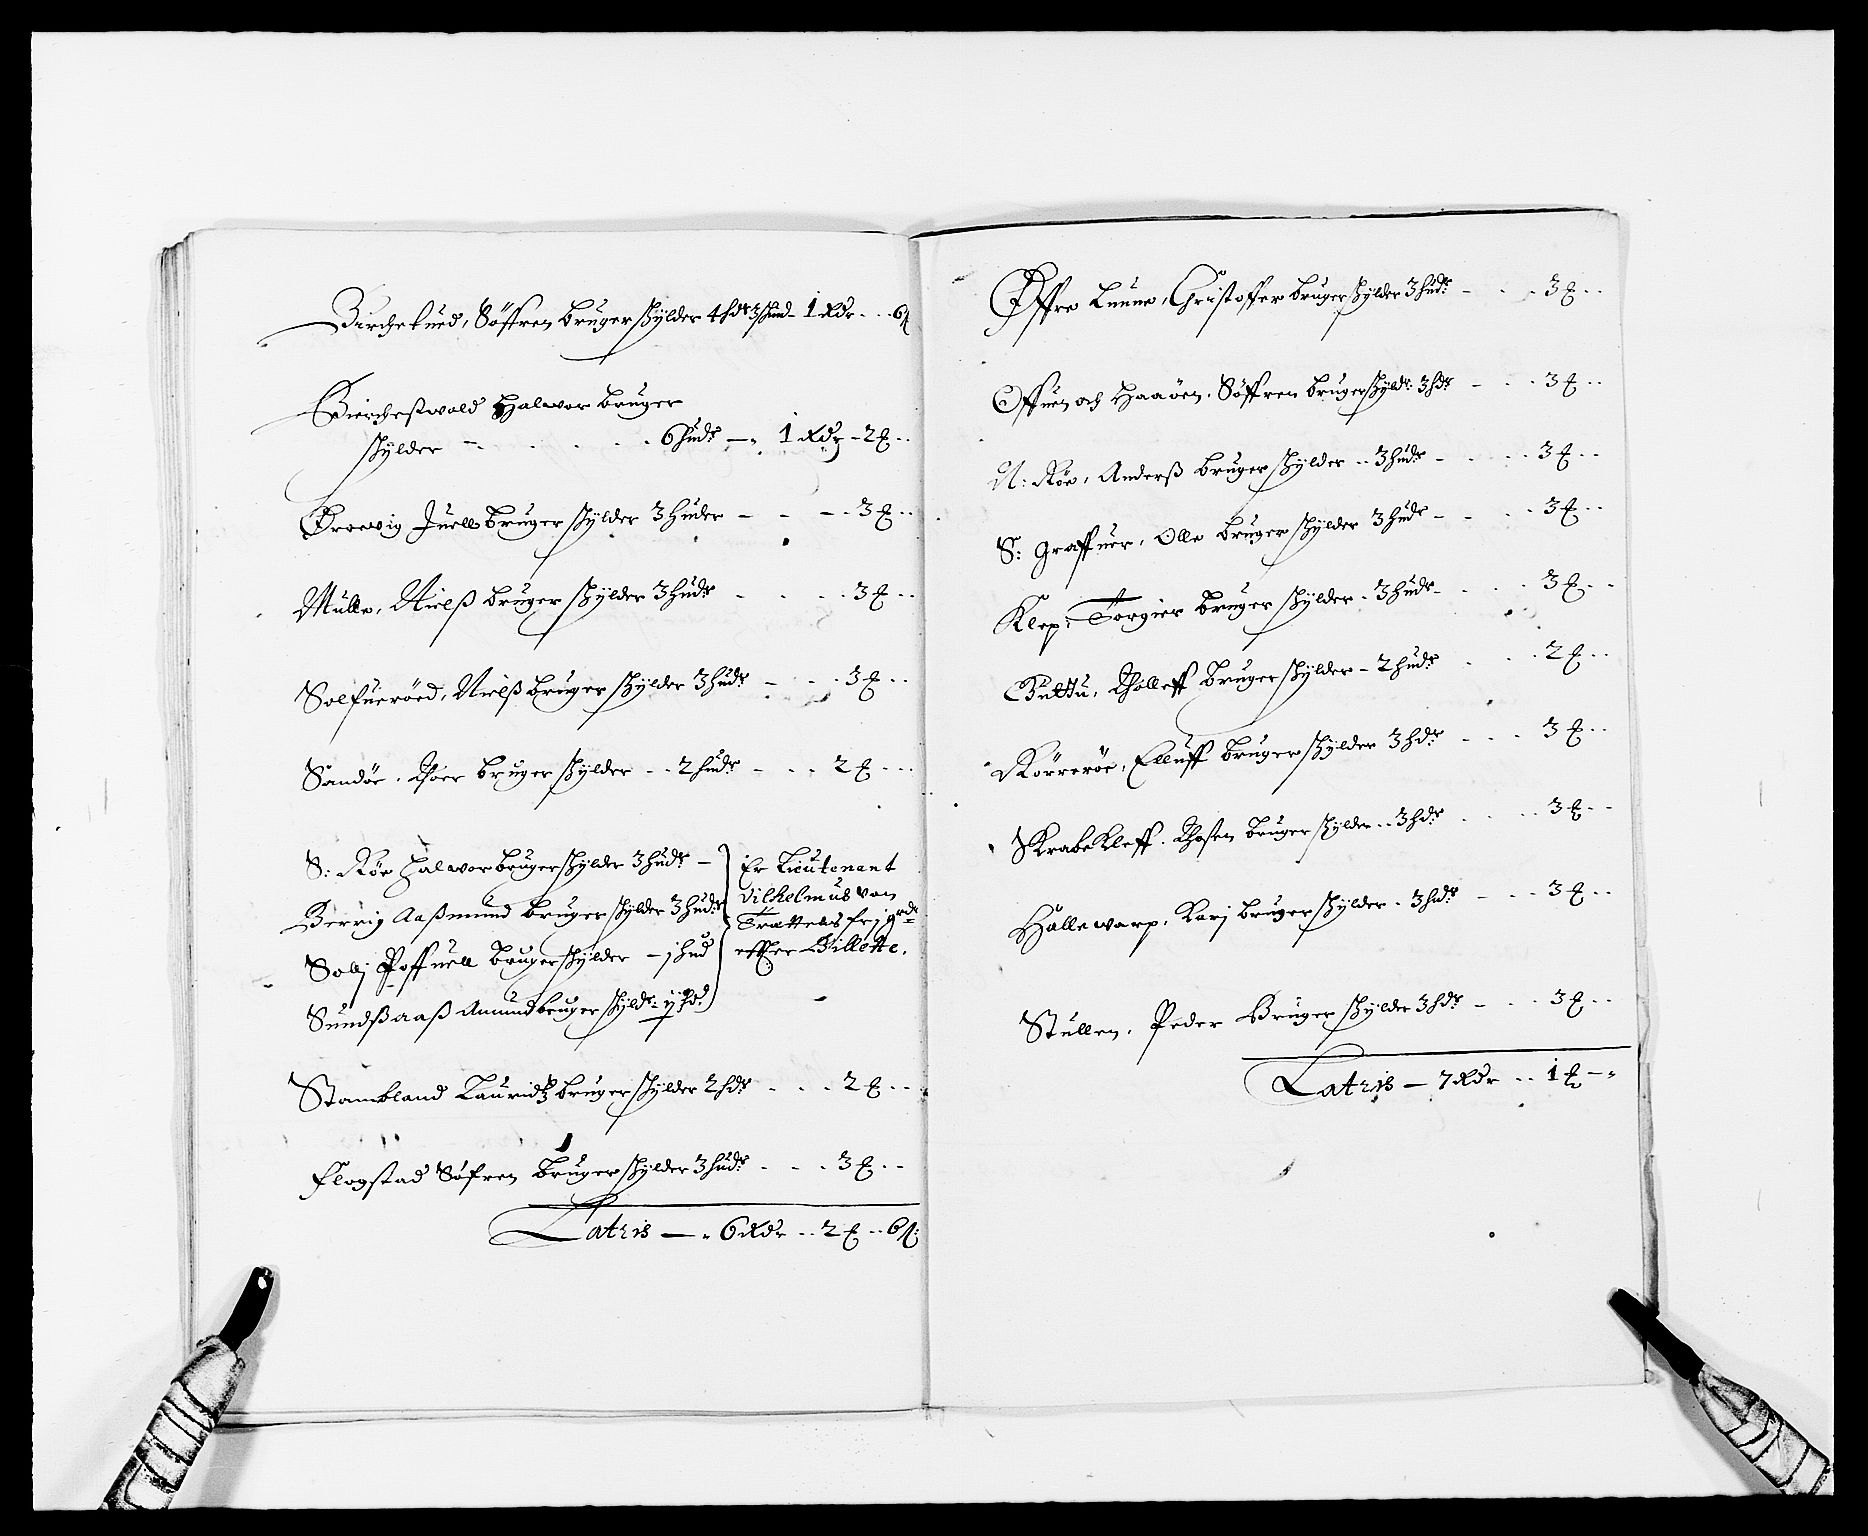 Birckelund, Söffren bruger skylder 4 hdr 3 skind - 1 Rdr - - - 6 ß
Bierckeßwald Halwor bruger
skylder - - - - - 6 hudr — 1 Rdr - 2 ℔ - -
Örewig Juell bruger skylder 3 huder - - - - 3 ℔ - -
Mülle, Nielß bruger skylder 3 hudr - - - - 3 ℔ - -
Solfueröed, Nielß bruger skylder 3 hudr - - - 3 ℔ - -
Sandöe, Thoer bruger skylder - - 2 hudr - - - 2 ℔ - - -
S: Röe Halwor bruger skylder 3 hudr -
Berrig Aaßmund bruger skylder 3 hudr
Solli Poffuell bruger skylder - j hud
Sundßaaß Amund bruger skyldr: ij hdr
Er Lieutenant
Vilhelmus von
Trattels frj grd:
effter Billette.
Stambland Lauridtz bruger skylder 2 hdr - - - 2 ℔ - -
Flogstad Söfren bruger skylder 3 hudr - - - 3 ℔ - -
Latris — 6 Rdr - - 2 ℔ - - 6 ß
Öffre Christoffer bruger skylder 3 hudr - - - 3 ℔ - -
Offuen och Haaöen, Söffren bruger skyldr: 3 hdr - - - 3 ℔ - -
N: Röe, Anderß bruger skylder - - 3 hudr - - - - 3 ℔ - -
S: Graffuer, Olle bruger skylder 3 hudr - - - - 3 ℔ - -
Klep, Torgier bruger skylder - 3 hudr - - - - 3 ℔ - -
Buttu, Tholleff bruger skylder - 2 hudr - - - 2 ℔ - -
Rörreröe, Elluff bruger skylder 3 hdr - - - 3 ℔ - -
Skrabekleff, Thosten bruger skylder - - 3 hdr - - - - 3 ℔ - -
Hallewarp, Karj bruger skylder - 3 hdr - - - 3 ℔ - -
Stullen, Peder Bruger skylder 3 hdr - - - 3 ℔ - -
Latris — 7 Rdr - - 1 ℔ - -